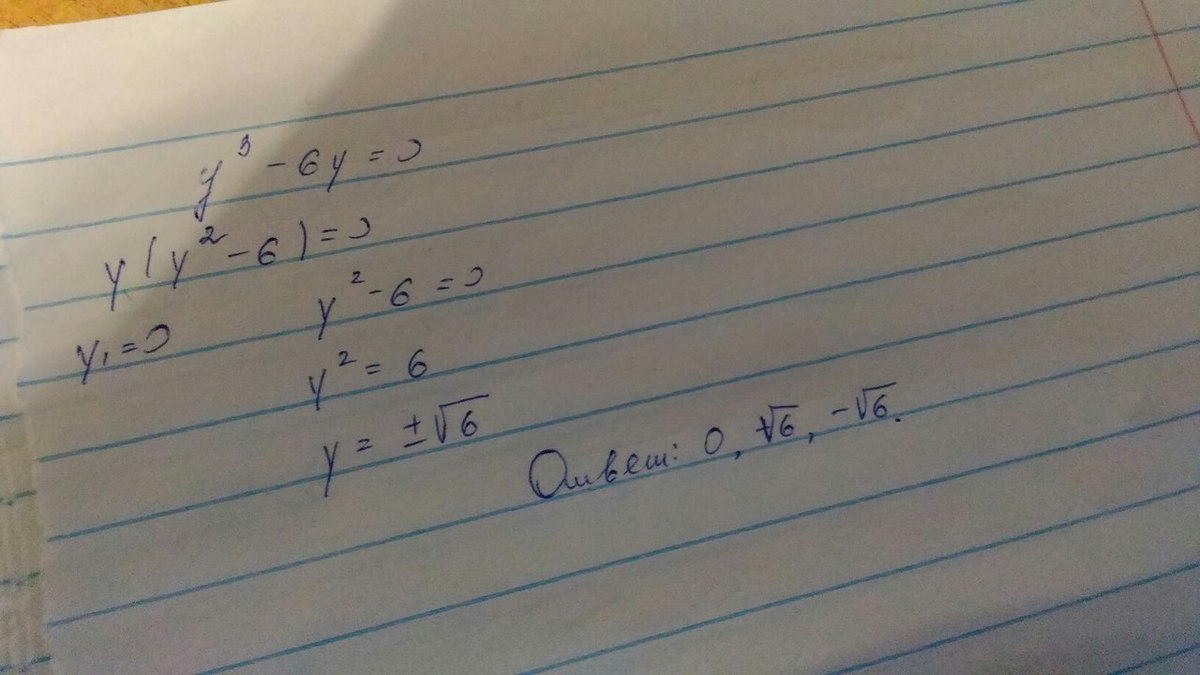 y³ - 6y = 0
y(y² - 6) = 0
y₁ = 0 y² - 6 = 0
y² = 6
y = ±√6
Ответ: 0, √6, -√6.